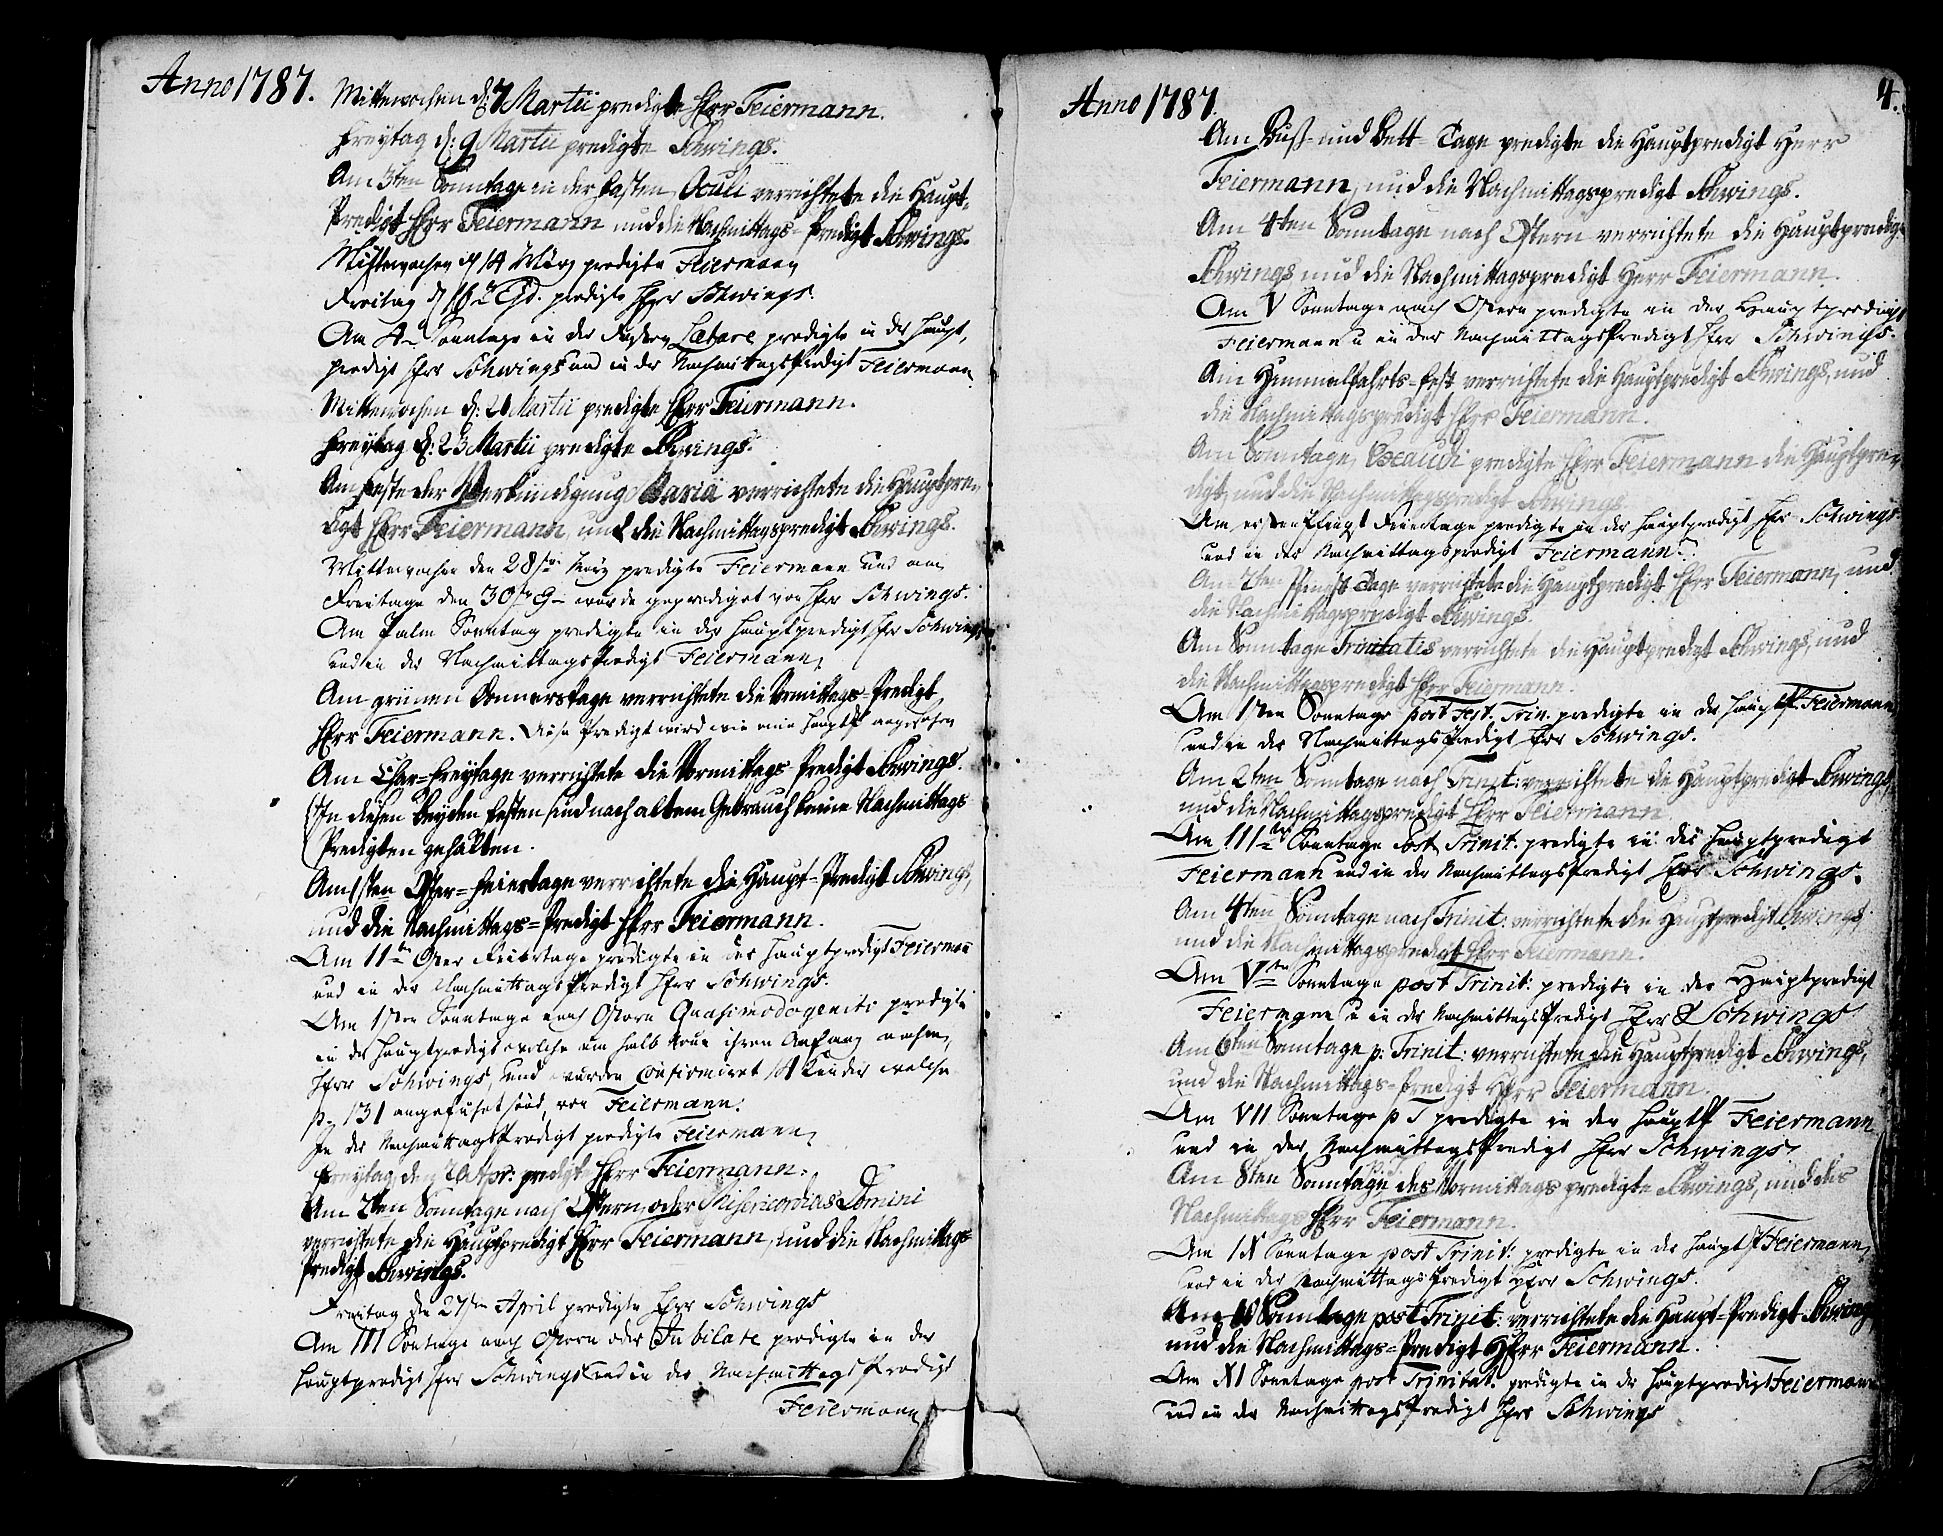 Anno 1787.
Mittewochen d: 7 Martii predigte Herr Feiermann.
Freytag d: 9 Martii predigte Schwings.
Am 3ten Sonntage in der Fasten Oculi verrichtete die Haupt-
Predigt Herr Feiermann und die Nachmittags-Predigt Schwings.
Mittewochen d 14 März predigte Feiermann
Freitag d 16 predigte Herr Schwings.
Am 4 Sonntage in der Fasten Lætare predigte in der Haupt,
predigt Herr Schwings und in der Nachmittags Predigt Feiermann
Mittewochen d: 21 Martii predigte Herr Feiermann.
Freytag d: 23 Martii predigte Schwings.
Am Feste der Verkündigung Mariä verrichtete die Hauptpre-
digt Herr Feiermann, und die Nachmittagspredigt Schwings.
Mittewochen den 28 März predigte Feiermann und am
Freitage den 30 wurde geprediget von Herr Schwings.
Am Palm Sonntag predigte in der Hauptpredigt Herr Schwings
und in der Nachmittags Predigt Feiermann
Am grünen Donnerstage verrichtete die Vormittags-Predigt
Herr Feiermann. Diese Predigt wird wie eine Hauptpr angesehen
Am Char-Freytage verrichtete die Vormittags Predigt Schwings.
(In diesen beyden Festen sind nach altem Gebrauch keine Nachmittags
Predigten gehalten.
Am 1sten Oster-Feiertage verrichtete die Haupt-Predigt Schwings,
und die Nachmittags-Predigt Herr Feiermann.
Am 11 Oster Feiertage predigte in der Hauptpredigt Feiermann
und in der Nachmittags Predigt Herr Schwings.
Am 1sten Sonntage nach Ostern Quasimodogeniti predigte
in der Hauptpredigt welche um halb neun ihren Anfang nahm,
Herr Schwings, und wurden Confirmiret 14 Kinder welche
p. 131 angeführet sind, von Feiermann.
In der Nachmittags Predigt predigte Feiermann
Freytag den 20 Apr: predigt Herr Feiermann.
Am 2ten Sonntage nach Ostern, oder Misericordias Domini
verrichtete die Hauptpredigt Herr Feiermann, und die Nachmittags-
Predigt Schwings.
Freitag den 27 April predigte Herr Schwings
Am III Sontage nach Ostern oder Jubilate predigte in der
Hauptpredigt Herr Schwings und in der Nachmittags Predigt
Feiermann
Anno 1787.
4.
Am Buß- und Bett-Tage predigte die Hauptpredigt Herr
Feiermann, und die Nachmittagspredigt Schwings.
Am 4ten Sonntage nach Ostern verrichtete die Hauptpredigt
Schwings und die Nachmittagspredigt Herr Feiermann.
Am V Sonntage nach Ostern predigte in der Hauptpredigt
Feiermann u in der Nachmittags Predigt Herr Schwings.
Am Himmelfahrts-Fest verrichtete die Hauptpredigt Schwings, und
die Nachmittagspredigt Herr Feiermann.
Am Sonntage, Exaudi predigte Herr Feiermann die Hauptpre-
digt, und die Nachmittagspredigt Schwings
Am ersten Pfingst Feiertage predigte in der Hauptpredigt Herr Schwings
und in der Nachmittagspredigt Feiermann.
Am 2ten Pfingst Tage verrichtete die Hauptpredigt Herr Feiermann, und
die Nachmittagspredigt Schwings.
Am Sonntage Trinitatis verrichtete die Hauptpredigt Schwings, und
die Nachmittagspredigt Herr Feiermann.
Am 1sten Sonntage post Fest. Trin. predigte in der Hauptpr Feiermann
und in der Nachmittags Predigt Herr Schwings.
Am 2ten Sonntage nach Trinit: verrichtete die Hauptpredigt Schwings,
und die Nachmittagspredigt Herr Feiermann
Am III Sonntage Post Trinit. predigte in der Hauptpredigt
Feiermann und in der Nachmittags Predigt Herr Schwings.
Am 4ten Sonntage nach Trinit: verrichtete die Hauptpredigt Schwings
und die Nachmittagspredigt Herr Feiermann.
Am V Sonntage post Trinit: predigte in der Hauptpredigt
Feiermann u in der Nachmittags Predigt Herr Schwings
Am 6ten Sonntage p: Trinit: verrichtete die Hauptpredigt Schwings,
und die Nachmittags-Predigt Herr Feiermann.
Am VII Sonntage p T predigte in der Hauptpr Feiermann
und in der Nachmittags Predigt Herr Schwings
Am 8ten Sonntage p. T. des Vormittags predigte Schwings, und des
Nachmittags Herr Feiermann.
Am IX Sonntage post Trinit: predigte in der Hauptpr Feiermann
und in der Nachmittags Predigt Herr Schwings.
Am 10 Sonntage post Trinit: verrichtete die Haupt-Predigt Schwings
und die Nachmittags-Predigt Herr Feiermann.
Am XI Sonntage post Trinitat. predigte in der Hauptpredigt Feiermann
und in der Nachmittags Predigt Herr Schwings